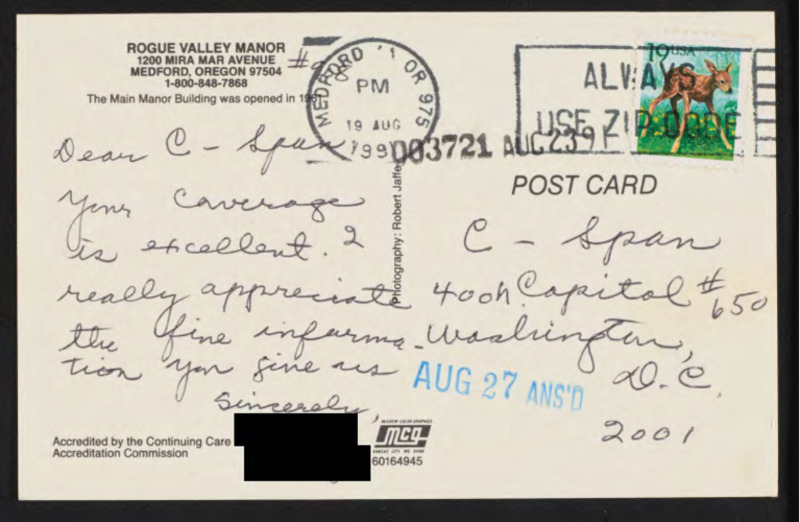 ROGUE VALLEY MANOR
1200 MIRA MAR AVENUE
MEDFORD, OREGON 97504
1-800-848-7868
The Main Manor Building was opened in 196
Dear C - Span
Your Caverage
is excellent. I
really appreciate
the fine informa-
tion you give us
Sincerely,
Accredited by the Continuing Care
Accreditation Commission
MEDFORD OR 975
PM
19 AUG
1991
003721 AUG 23 91
ALWAYS
USE ZIP CODE
19 USA
Photography: Robert Jaffe
POST CARD
C - Span
400 n Capitol #650
Washington,
D.C.
2001
AUG 27 ANS'D
MCG
60164945